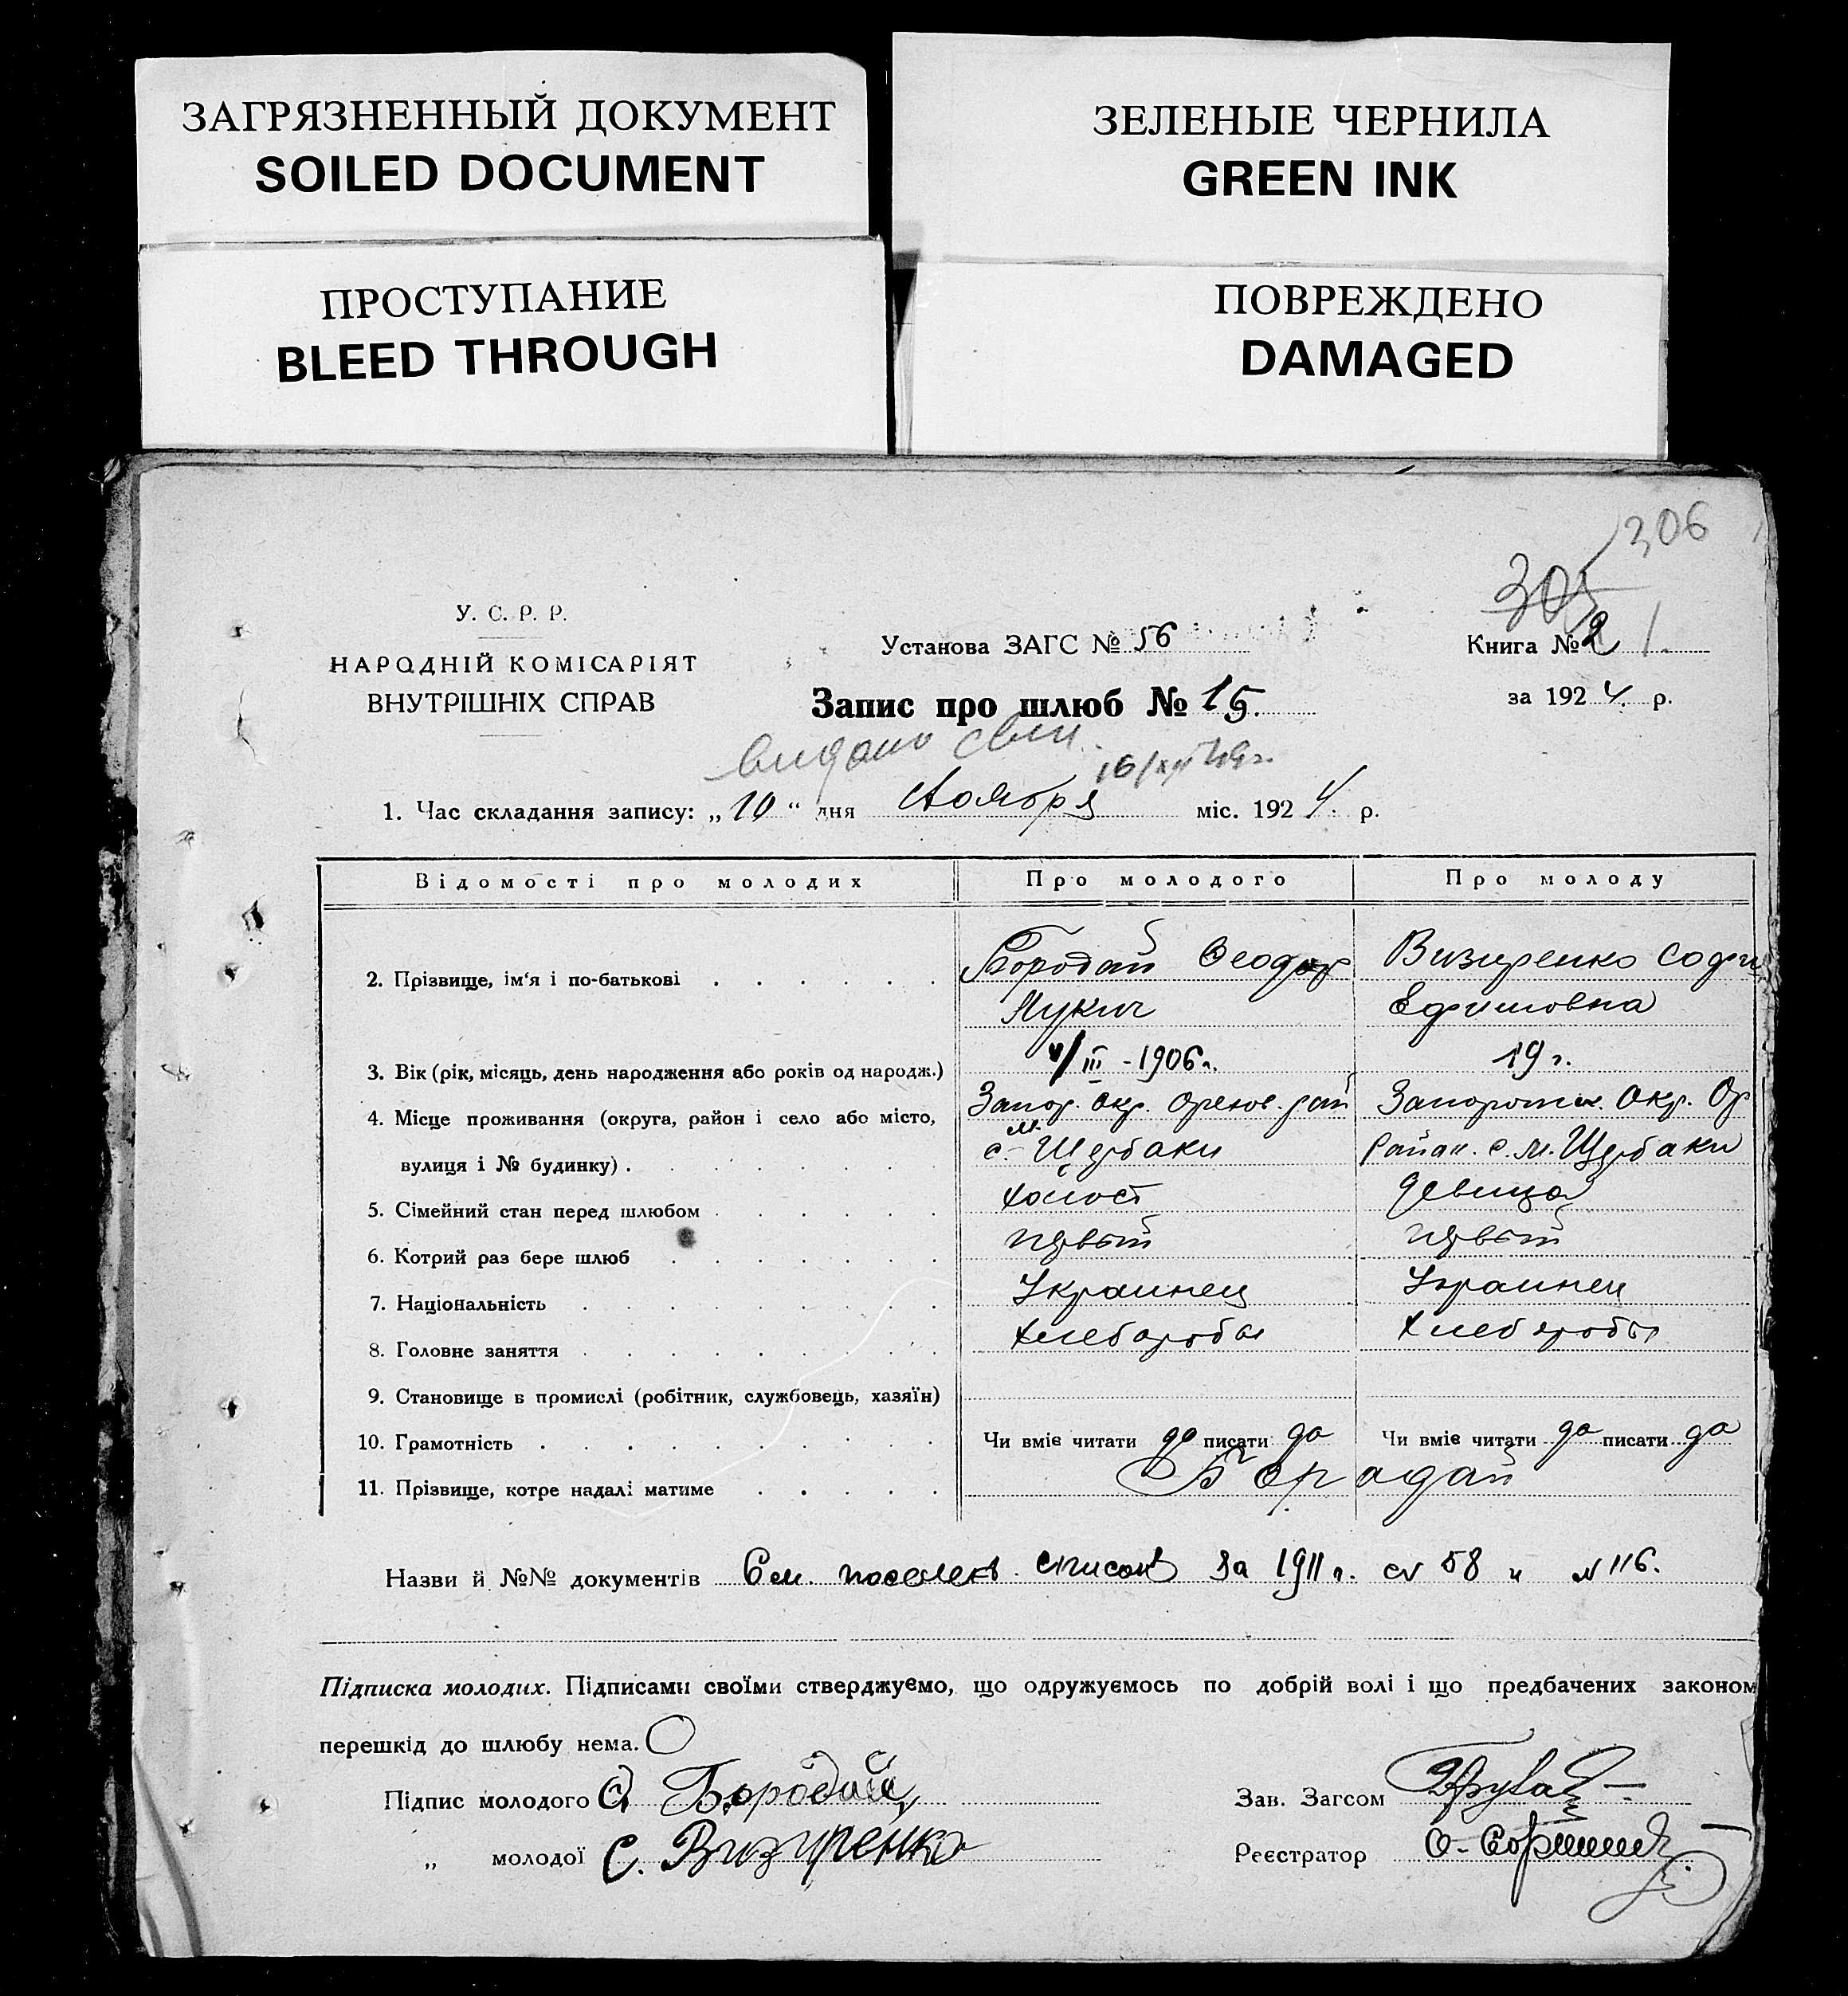 ЗАГРЯЗНЕННЫЙ ДОКУМЕНТ
SOILED DOCUMENT
ЗЕЛЕНЫЕ ЧЕРНИЛА
GREEN INK
ПРОСТУПАНИЕ
BLEED THROUGH
ПОВРЕЖДЕНО
DAMAGED
306
305
У. С. Р. Р.
НАРОДНІЙ КОМІСАРІЯТ
ВНУТРІШНІХ СПРАВ
Установа ЗАГС № 56
Книга № 2 1.
Запис про шлюб № 15.
за 1924. р.
видано
1. Час складання запису: „10“ дня Ноября міс. 1924. р.
Відомості про молодих Про молодого Про молоду
2. Прізвище, ім‘я і по-батькові Бородай Феодор Визиренко Софи
Лукич Ефимовна
3. Вік (рік, місяць, день народження або років од народж.) 4/III - 1906 г. 19 г.
4. Місце проживання (округа, район і село або місто, Запор. Окр. Орехов. рай Запорож. Окр. Ор
вулиця і № будинку) с. М. Щербаки район. с. М. Щербаки
5. Сімейний стан перед шлюбом холост девица
6. Котрий раз бере шлюб первый первый
7. Національність Украинец Украинец
8. Головне заняття хлебороб хлебороб
9. Становище в промислі (робітник, службовець, хазяїн)
10. Грамотність Чи вміє читати да писати да Чи вміє читати да писати да
11. Прізвище, котре надалі матиме Бородай
Назви й №№ документів список за 1911 г. 58 и 116.
Підписка молодих. Підписами своїми стверджуємо, що одружуємось по добрій волі і що предбачених законом
перешкід до шлюбу нема.
Підпис молодого Бородай
Зав. Загсом
„ молодої С. Визиренко
Реєстратор